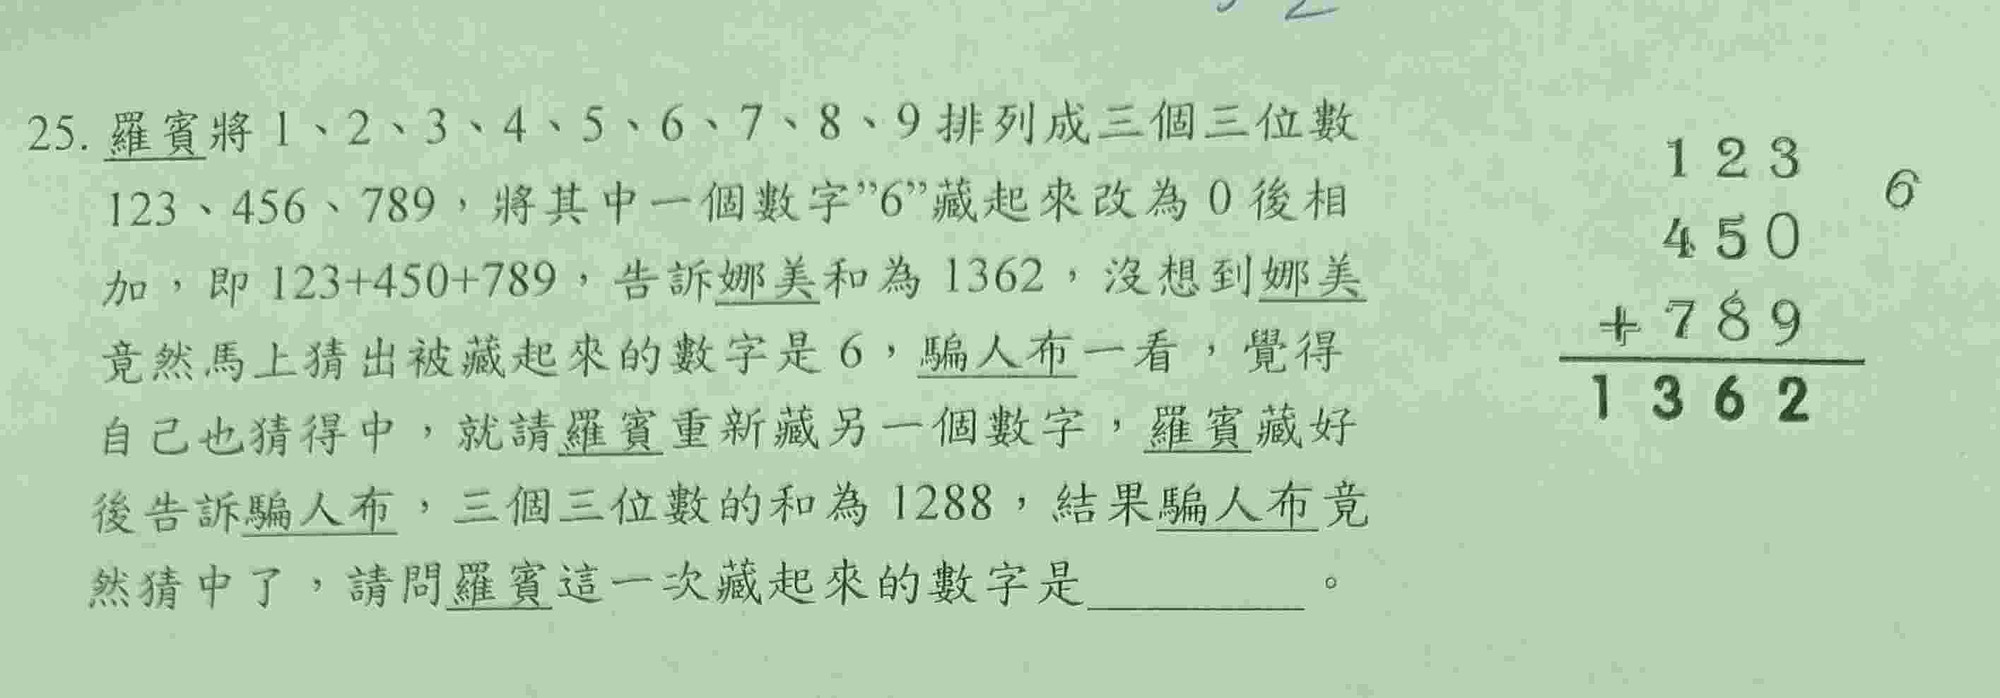 25. 羅賓將 1、2、3、4、5、6、7、8、9 排列成三個三位數
123、456、789，將其中一個數字”6”藏起來改為 0 後相
加，即 123+450+789，告訴娜美和為 1362，沒想到娜美
竟然馬上猜出被藏起來的數字是 6，騙人布一看，覺得
自己也猜得中，就請羅賓重新藏另一個數字，羅賓藏好
後告訴騙人布，三個三位數的和為 1288，結果騙人布竟
然猜中了，請問羅賓這一次藏起來的數字是__________。
1 2 3
6
4 5 0
+ 7 8 9
1 3 6 2